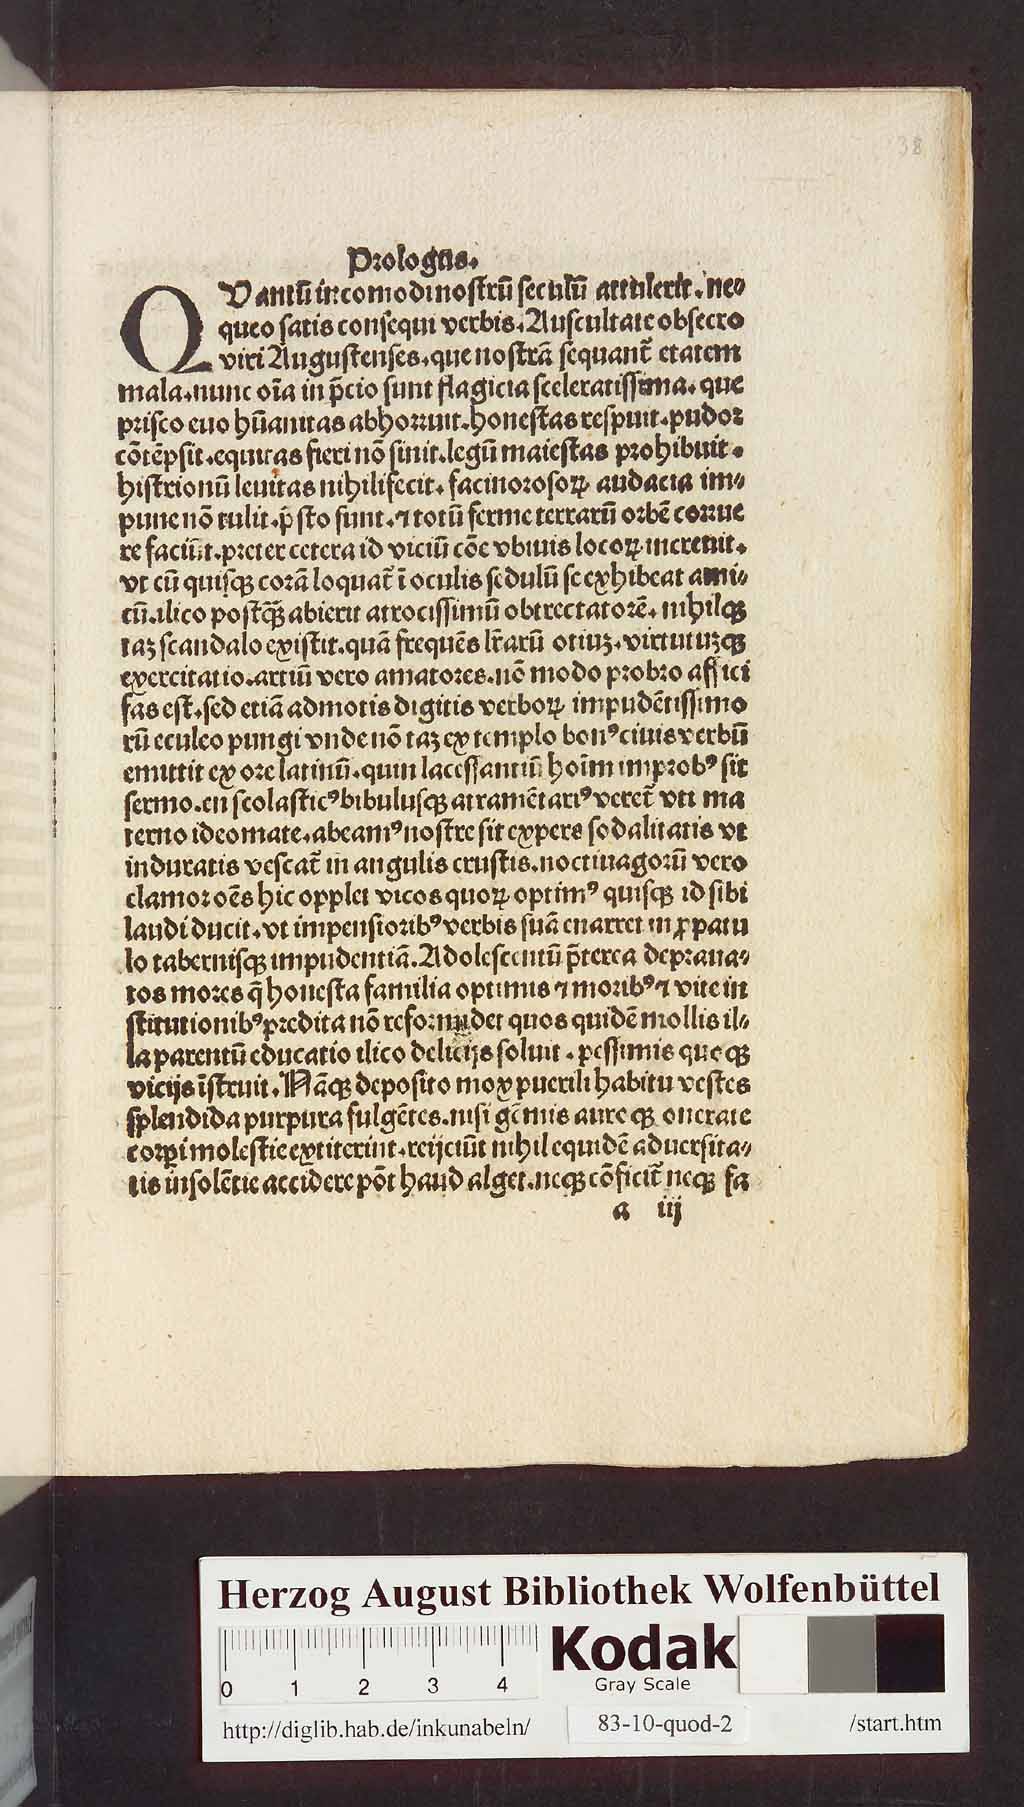 38
Prologus.
QVantū incomodi nostrū seculū attulerit. ne⸗
queo satis consequi verbis. Auscultate obsecro
viri Augustenses. que nostrā sequant᷑ etatem
mala. nunc oīa in p̄cio sunt flagicia sceleratissima. que
prisco euo hūanitas abhorruit. honestas respuit. pudor
cōtēpsit. equitas fieri nō sinit. legū maiestas prohibuit.
histrionū leuitas nihilifecit. facinorosoꝝ audacia im⸗
pune nō tulit. p̄sto sunt. ⁊ totū ferme terrarū orbē corrue
re faciūt. preter cetera id viciū cōe vbiuis locoꝝ increuit.
vt cū quisqꝫ corā loquat᷑ ī oculis sedulū se exhibeat ami⸗
cū. ilico postqꝫ̄ abierit atrocissimū obtrectatorē. nihilqꝫ
taꝫ scandalo existit. quā frequēs lr̄arū otiuꝫ. virtutuꝫqꝫ
exercitatio. artiū vero amatores. nō modo probro affici
fas est. sed etiā admotis digitis verboꝝ impudētissimo
rū eculeo pungi vnde nō taꝫ extemplo bonꝰ ciuis verbū
emittit ex ore latinū. quin lacessantiū hoīm improbꝰ sit
sermo. en scolasticꝰ bibulusqꝫ atramētariꝰ veret᷑ vti ma
terno ideomate. abeamꝰ nostre sit expers sodalitatis vt
induratis vescat᷑ in angulis crustis. noctiuagorū vero
clamor oēs hic opplet vicos quoꝝ optimꝰ quisqꝫ id sibi
laudi ducit. vt impensioribꝰ verbis suā enarret in ꝓpatu
lo tabernisqꝫ impudentiā. Adolescentū p̄terea depraua⸗
tos mores q̄ honesta familia optimis ⁊ moribꝰ ⁊ vite in
stitutionibꝰ predita nō reformidet quos quidē mollis il⸗
la parentū educatio ilico delicijs soluit. pessimis queqꝫ
vicijs īstruit. Nāqꝫ deposito mox puerili habitu vestes
splendida purpura fulgētes. nisi gēmis aureqꝫ onerate
corꝑi molestie extiterint. reijciūt nihil equidē aduersita⸗
tis insolētie accidere pōt haud alget. neqꝫ cōficit᷑ neqꝫ fa
a iij
Herzog August Bibliothek Wolfenbüttel
0 1 2 3 4
Kodak
Gray Scale
http://diglib.hab.de/inkunabeln/ 83-10-quod-2 /start.htm